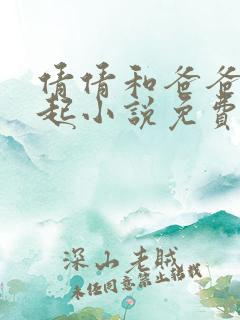 倩倩和爸爸
起小说免費
深山老贼
未经同意禁止转载